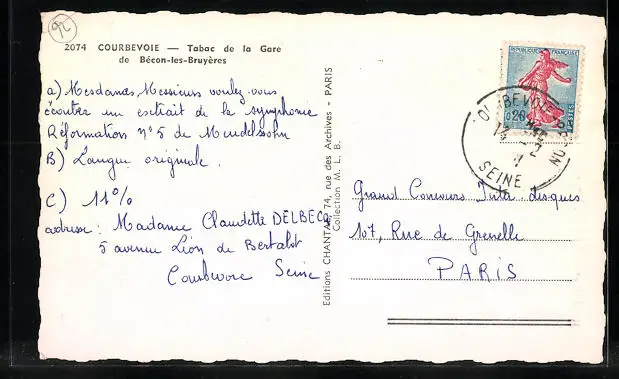 92
2074 COURBEVOIE — Tabac de la Gare
de Bécon-les-Bruyères
a) Mesdames, Messieurs voulez-vous
écouter un extrait de la symphonie
Réformation n°5 de Mendelssohn
B) Langue originale.
C) 11%
adresse : Madame Claudette DELBECQ
5 avenue Léon de Bertalot
Courbevoie Seine
Editions CHANTAL, 74, rue des Archives - PARIS
Collection M. L. B.
REPUBLIQUE FRANÇAISE
0,20
POSTES
COURBEVOIE
SEINE
Grand Concours Inter disques
107, Rue de Grenelle
PARIS